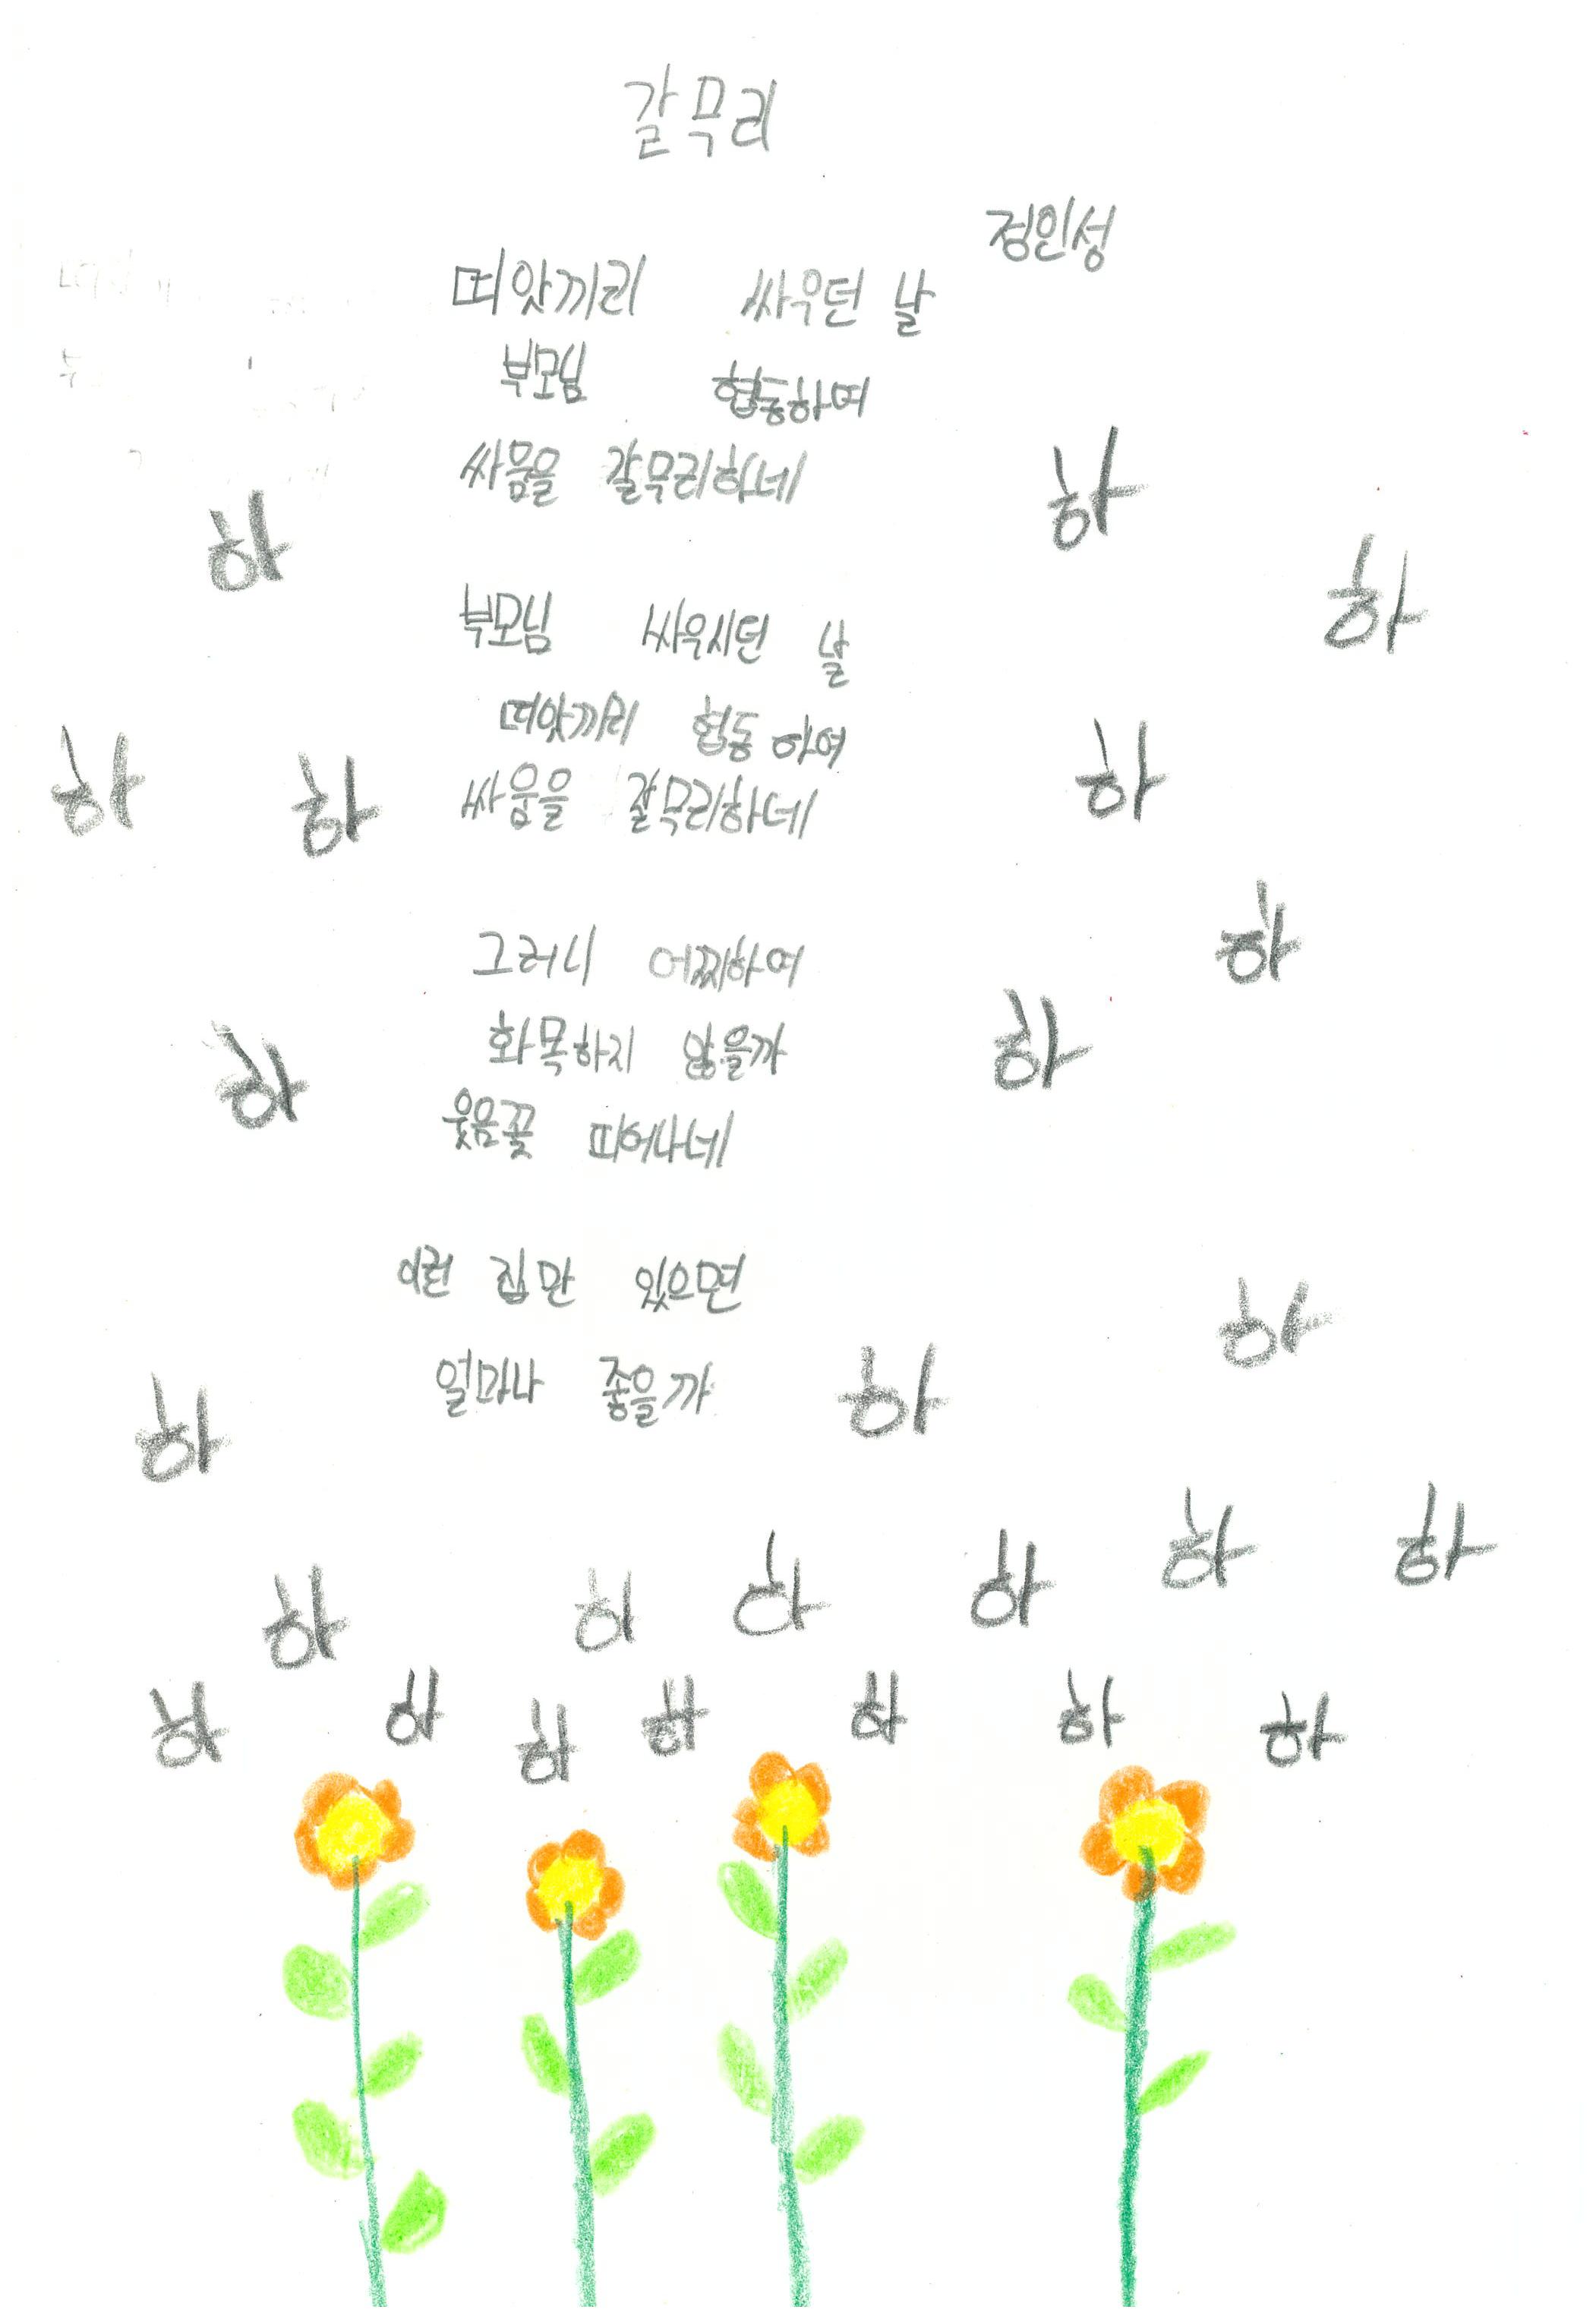 갈무리
정인성
띠앗끼리 싸우던 날
부모님 협동하여
싸움을 갈무리하네
하
하
하
부모님 싸우시던 날
띠앗끼리 협동하여
하 하 하
싸움을 갈무리하네
하
그러니 어찌하여
화목하지 않을까
하 하
웃음꽃 피어나네
이런 집만 있으면
하
얼마나 좋을까
하 하
하 하 하 하 하 하
하 하 하 하 하 하 하